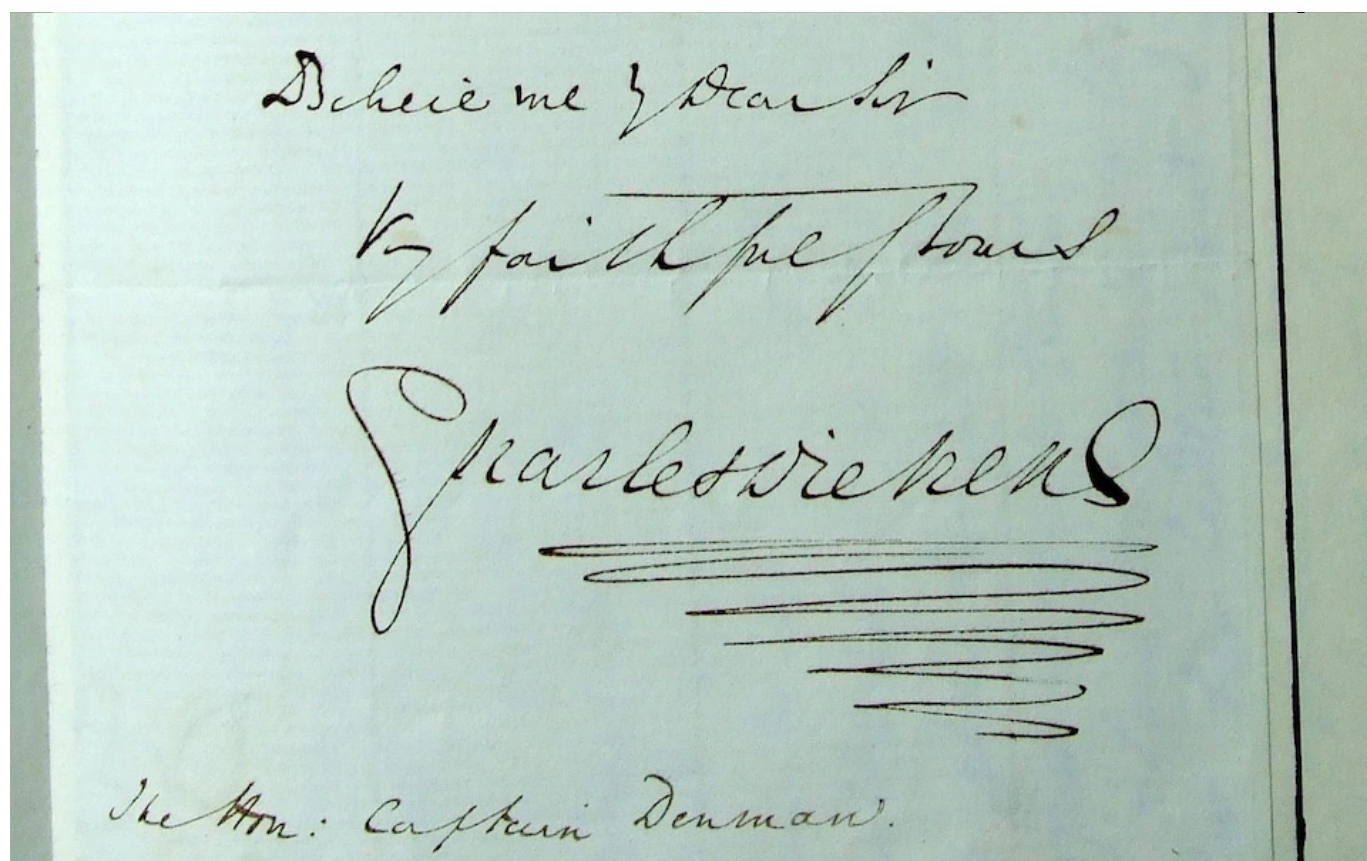 Believe me My Dear Sir
Very faithfully Yours
Charles Dickens
The Hon: Captain Denman.